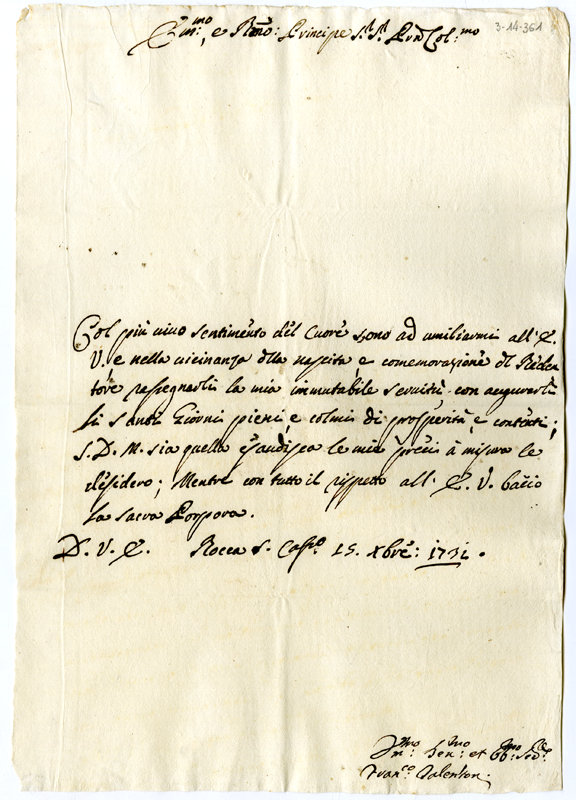 Em:mo, e Rmo: Principe Sd. Sd. Prõ Col:mo
3-14-361
Col più uiuo sentimento del Cuore sono ad umiliarmi all'E.
V., e nella uicinanza dlla nascita, e comemorazione dl Reden
tore rassegnarli la mia immutabile seruitù con augurarli
li santi Giorni pieni, e colmi di prosperità, e contenti;
S. D. M. sia quella esaudisca le mie preci à misura le
desidero; Mentre con tutto il rispetto all' E. V. baccio
la sacra Porpora.
D. V. E. Rocca S. Casno. 15. Xbre: 1731.
Vmo: et Obbmo:
Franco. Valentini.